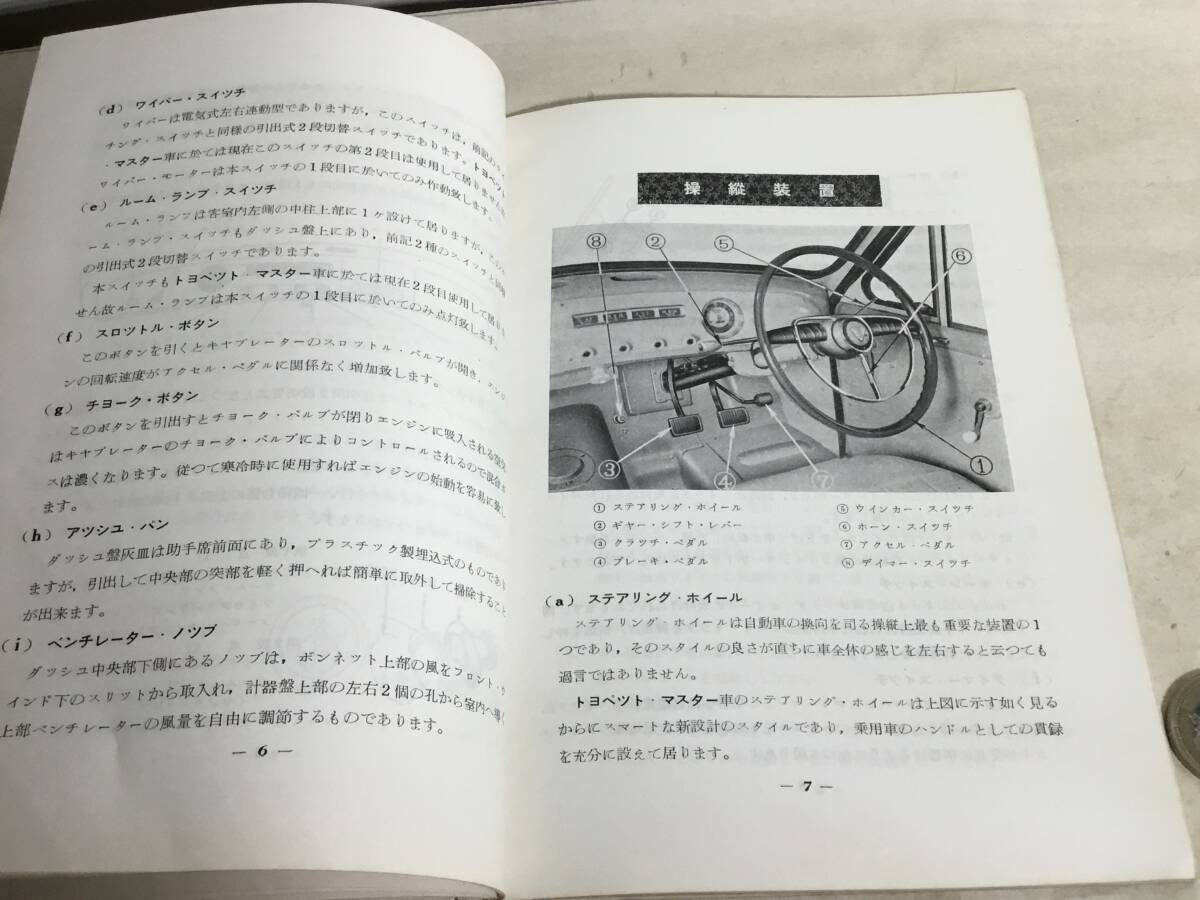 (d) ワイパー・スイツチ
ワイパーは電気式左右連動型でありますが，このスイツチは，前記の
チング・スイツチと同様の引出式2段切替スイツチであります。トヨペツト
・マスター車に於ては現在このスイツチの第2段目は使用して居りませんま
ワイパー・モーターは本スイツチの1段目に於いてのみ作動致します。
(e) ルーム・ランプ・スイツチ
ルーム・ランプは客室内左側の中柱上部に1ヶ設けて居りますが，この
ーム・ランプ・スイツチもダツシユ盤上にあり，前記2種のスイツチと同様
の引出式2段切替スイツチであります。
本スイツチもトヨペツト・マスター車に於ては現在2段目使用して居りま
せん故ルーム・ランプは本スイツチの1段目に於いてのみ点灯致します。
(f) スロツトル・ボタン
このボタンを引くとキヤブレーターのスロツトル・バルブが開き，エンジ
ンの回転速度がアクセル・ペダルに関係なく増加致します。
(g) チヨーク・ボタン
このボタンを引出すとチヨーク・バルブが閉りエンジンに吸入される空気
はキヤブレーターのチヨーク・バルブによりコントロールされるので混合ガ
スは濃くなります。従つて寒冷時に使用すればエンジンの始動を容易に致し
ます。
(h) アツシユ・パン
ダツシユ盤灰皿は助手席前面にあり，プラスチック製埋込式のものであり
ますが，引出して中央部の突部を軽く押へれば簡単に取外して掃除すること
が出来ます。
(i) ベンチレーター・ノツブ
ダツシユ中央部下側にあるノツブは，ボンネット上部の風をフロント・ウ
インド下のスリットから取入れ，計器盤上部の左右2個の孔から室内へ導く
上部ベンチレーターの風量を自由に調節するものであります。
— 6 —
操縦装置
⑧ ② ⑤ ⑥
③ ④ ⑦ ①
① ステアリング・ホイール
② ギヤー・シフト・レバー
③ クラツチ・ペダル
④ ブレーキ・ペダル
⑤ ウインカー・スイツチ
⑥ ホーン・スイツチ
⑦ アクセル・ペダル
⑧ デイマー・スイツチ
(a) ステアリング・ホイール
ステアリング・ホイールは自動車の換向を司る操縦上最も重要な装置の1
つであり，そのスタイルの良さが直ちに車全体の感じを左右すると云つても
過言ではありません。
トヨペツト・マスター車のステアリング・ホイールは上図に示す如く見る
からにスマートな新設計のスタイルであり，乗用車のハンドルとしての貫録
を充分に設えて居ります。
— 7 —